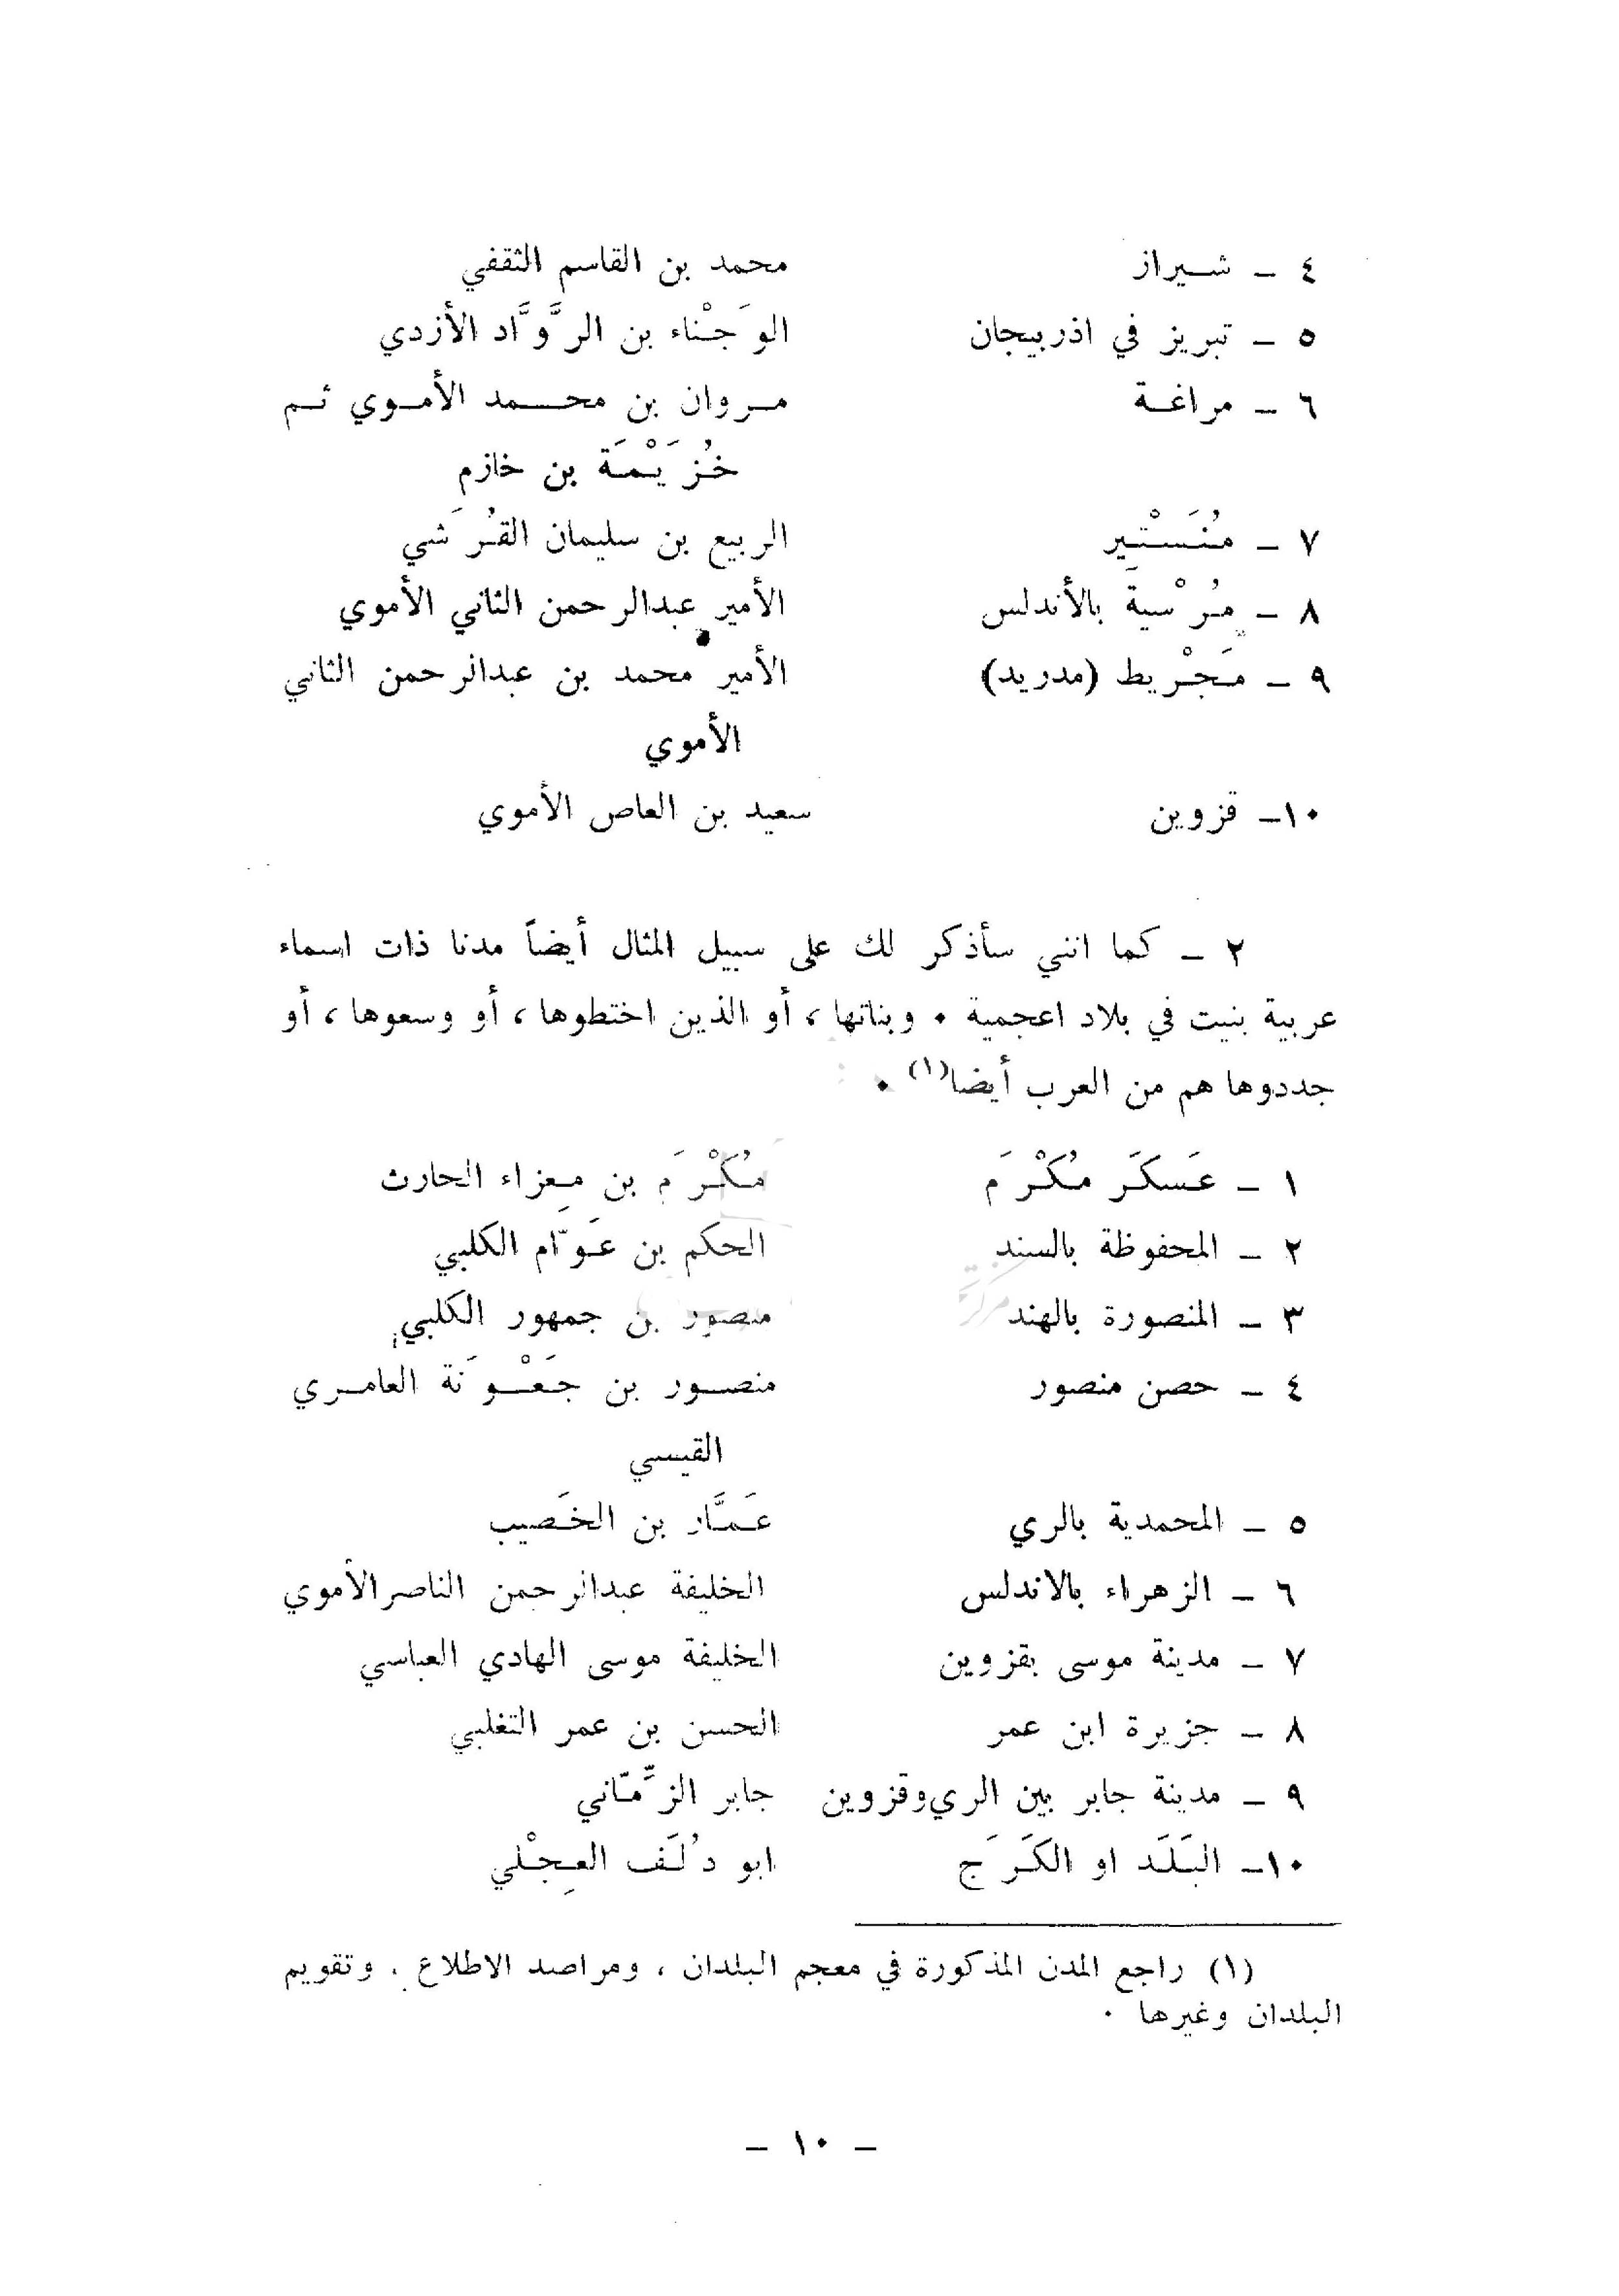 ٤ ــ شــيراز محمد بن القاسم الثقفي
٥ ــ تبريز في اذربيجان الوَجْناء بن الرَّوَّاد الأزدي
٦ ــ مراغــة مــروان بن محــــمد الأمــوي ثــم
خُزَيْمَة بن خازم
٧ ــ مُنَسْتير الربيع بن سليمان القُرَشي
٨ ــ مُرْسيَة بالأندلس الأمير عبدالرحمن الثاني الأموي
٩ ــ مَجْريط (مدريد) الأمير محمد بن عبدالرحمن الثاني
الأموي
١٠ــ قزوين سعيد بن العاص الأموي
٢ ــ كما انني سأذكر لك على سبيل المثال أيضاً مدنا ذات اسماء
عربية بنيت في بلاد اعجمية . وبناتها ، أو الذين اختطوها ، أو وسعوها ، أو
جددوها هم من العرب أيضا(١) .
١ ــ عَسكَر مُكْرَم مُكْرَم بن مِعزاء الحارث
٢ ــ المحفوظة بالسند الحكم بن عَوّام الكلبي
٣ ــ المنصورة بالهند منصور بن جمهور الكلبي
٤ ــ حصن منصور منصــور بن جَعْــوَنة العامــري
القيسي
٥ ــ المحمدية بالري عَمَّار بن الخَصيب
٦ ــ الزهراء بالاندلس الخليفة عبدالرحمن الناصرالأموي
٧ ــ مدينة موسى بقزوين الخليفة موسى الهادي العباسي
٨ ــ جزيرة ابن عمر الحسن بن عمر التغلبي
٩ ــ مدينة جابر بين الري وقزوين جابر الزِّمّاني
١٠ــ البَلَد او الكَرَج ابو دُلَف العِجْلي
(١) راجع المدن المذكورة في معجم البلدان ، ومراصد الاطلاع . وتقويم
البلدان وغيرها .
ــ ١٠ ــ